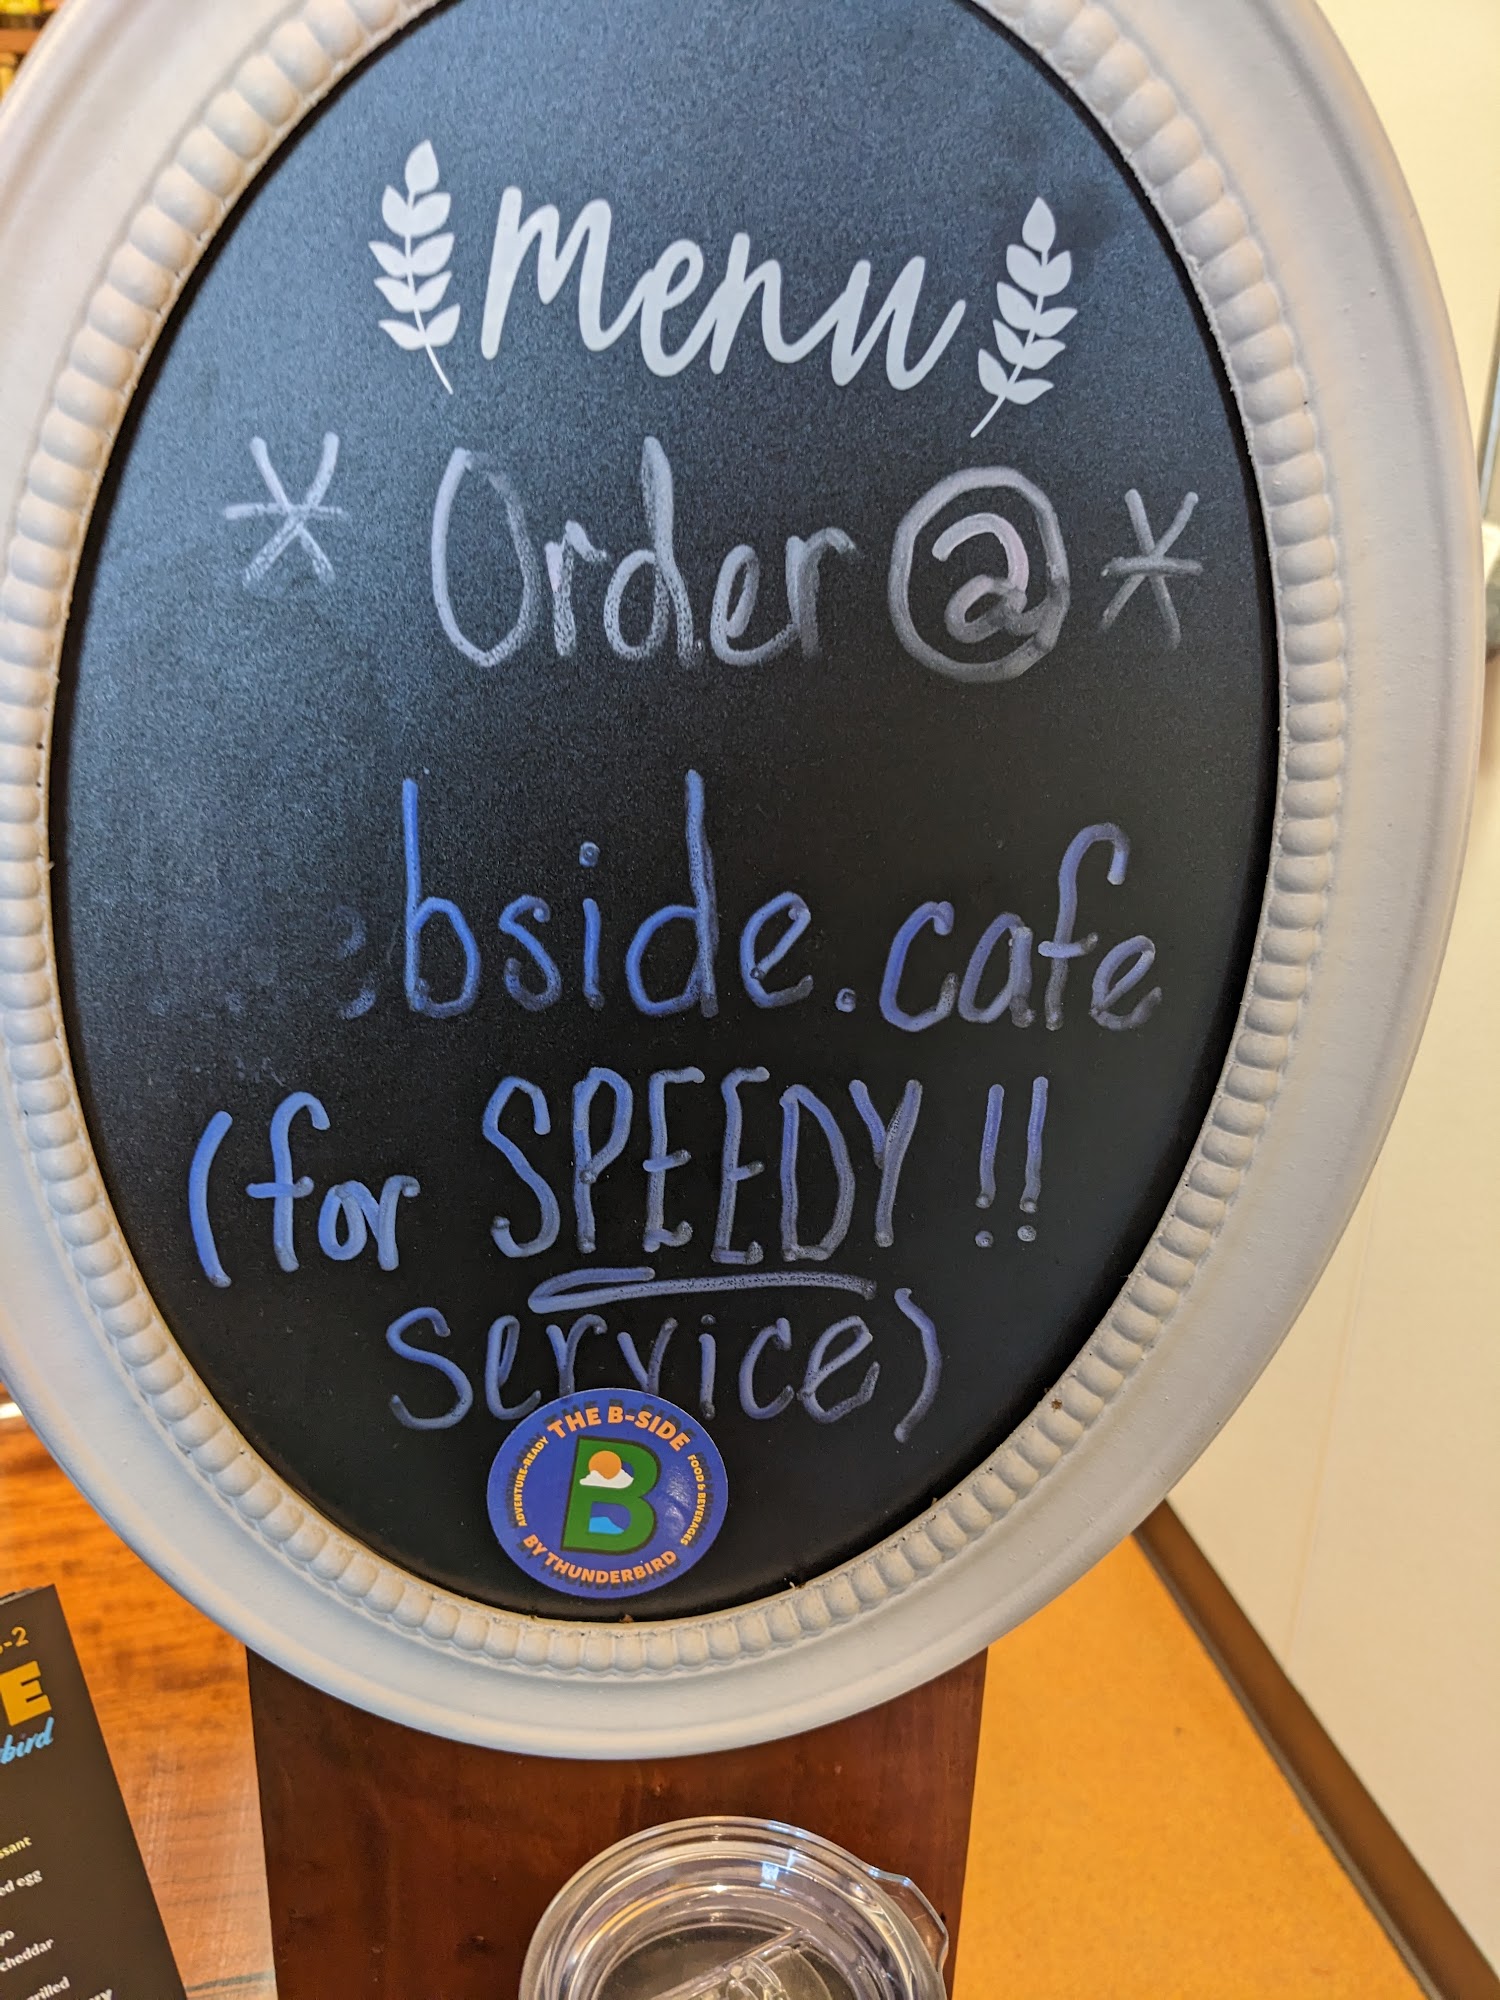 menu
* Order @ *
bside.cafe
(for SPEEDY !!
service)
THE B-SIDE
ADVENTURE-READY
FOOD & BEVERAGES
B
BY THUNDERBIRD
-2
E
bird
ssant
ed egg
yo
cheddar
grilled